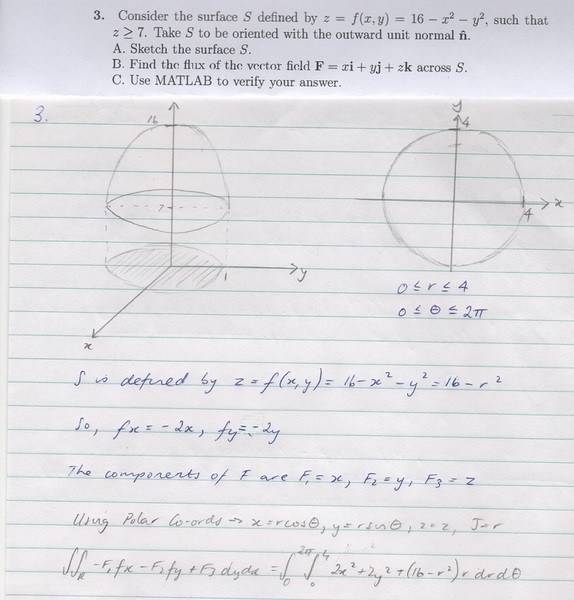 3. Consider the surface S defined by z = f(x, y) = 16 − x² − y², such that
z ≥ 7. Take S to be oriented with the outward unit normal n̂.
A. Sketch the surface S.
B. Find the flux of the vector field F = xi + yj + zk across S.
C. Use MATLAB to verify your answer.
3.
16
7
1
y
x
y
4
x
4
0 ≤ r ≤ 4
0 ≤ θ ≤ 2π
S is defined by z = f(x,y) = 16 - x² - y² = 16 - r²
So, fx = -2x, fy = -2y
The components of F are F₁ = x, F₂ = y, F₃ = z
Using Polar Co-ords → x = rcosθ, y = rsinθ, z = z, J = r
∫∫R -F₁fx - F₂fy + F₃ dydx = ∫₀^2π ∫₀^4 2x² + 2y² + (16 - r²) r dr dθ